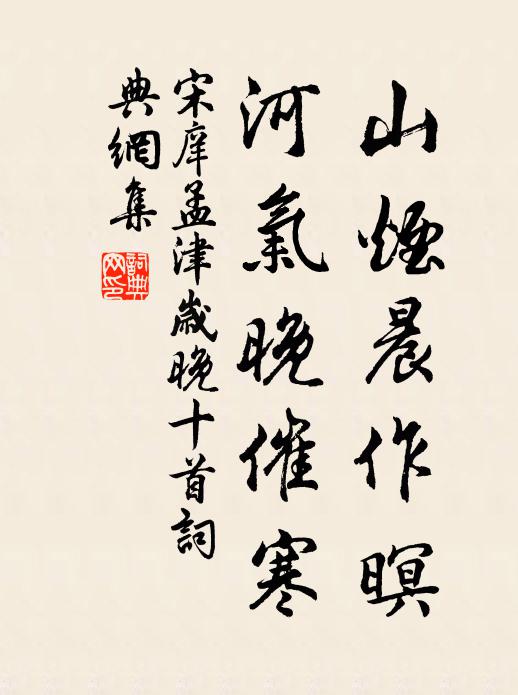 山煙晨作暝
河氣晚催寒
宋庠孟津歲晚十首詞
典網集
詞典網印